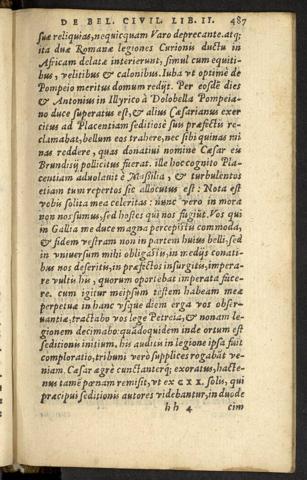 DE BEL. CIVIL. LIB. II. 487
suæ reliquias, nequicquam Varo deprecante. atq;
ita duæ Romanæ legiones Curionis ductu in
Africam delatæ interierunt, simul cum equiti-
bus, velitibus & calonibus. Iuba vt optimè de
Pompeio meritus domum redijt. Per eosdē dies
& Antonius in Illyrico à Dolobella Pompeia-
no duce superatus est, & alius Cæsarianus exer
citus ad Placentiam seditiosè suis præfectis re-
clamabat, bellum eos trahere, nec sibi quinas mi
nas reddere, quas donatiui nomine Cæsar eu
Brundisij pollicitus fuerat. ille hoc cognito Pla-
centiam aduolauit è Massilia, & turbulentos
etiam tum repertos sic allocutus est: Nota est
vobis solita mea celeritas: nunc vero in mora
non nos sumus, sed hostes qui nos fugiūt. Vos qui
in Gallia me duce magna percepistis commoda,
& fidem vestram non in partem huius belli, sed
in vniuersum mihi obligastis, in medijs conati-
bus nos deseritis, in præfectos insurgitis, impera-
re vultis his, quorum oportebat imperata face-
re. cum igitur meipsum testem habeam meæ
perpetuæ in hanc vsque diem erga vos obser-
uantiæ, tractabo vos lege Petreia, & nonam le-
gionem decimabo: quadoquidem inde ortum est
seditionis initium. his auditis in legione ipsa fuit
comploratio, tribuni verò supplices rogabāt ve-
niam. Cæsar ægrè cunctanterq; exoratus, hacte-
nus tamē pœnam remisit, vt ex CXX. solis, qui
præcipui seditionis autores videbantur, in duode
hh 4 cim